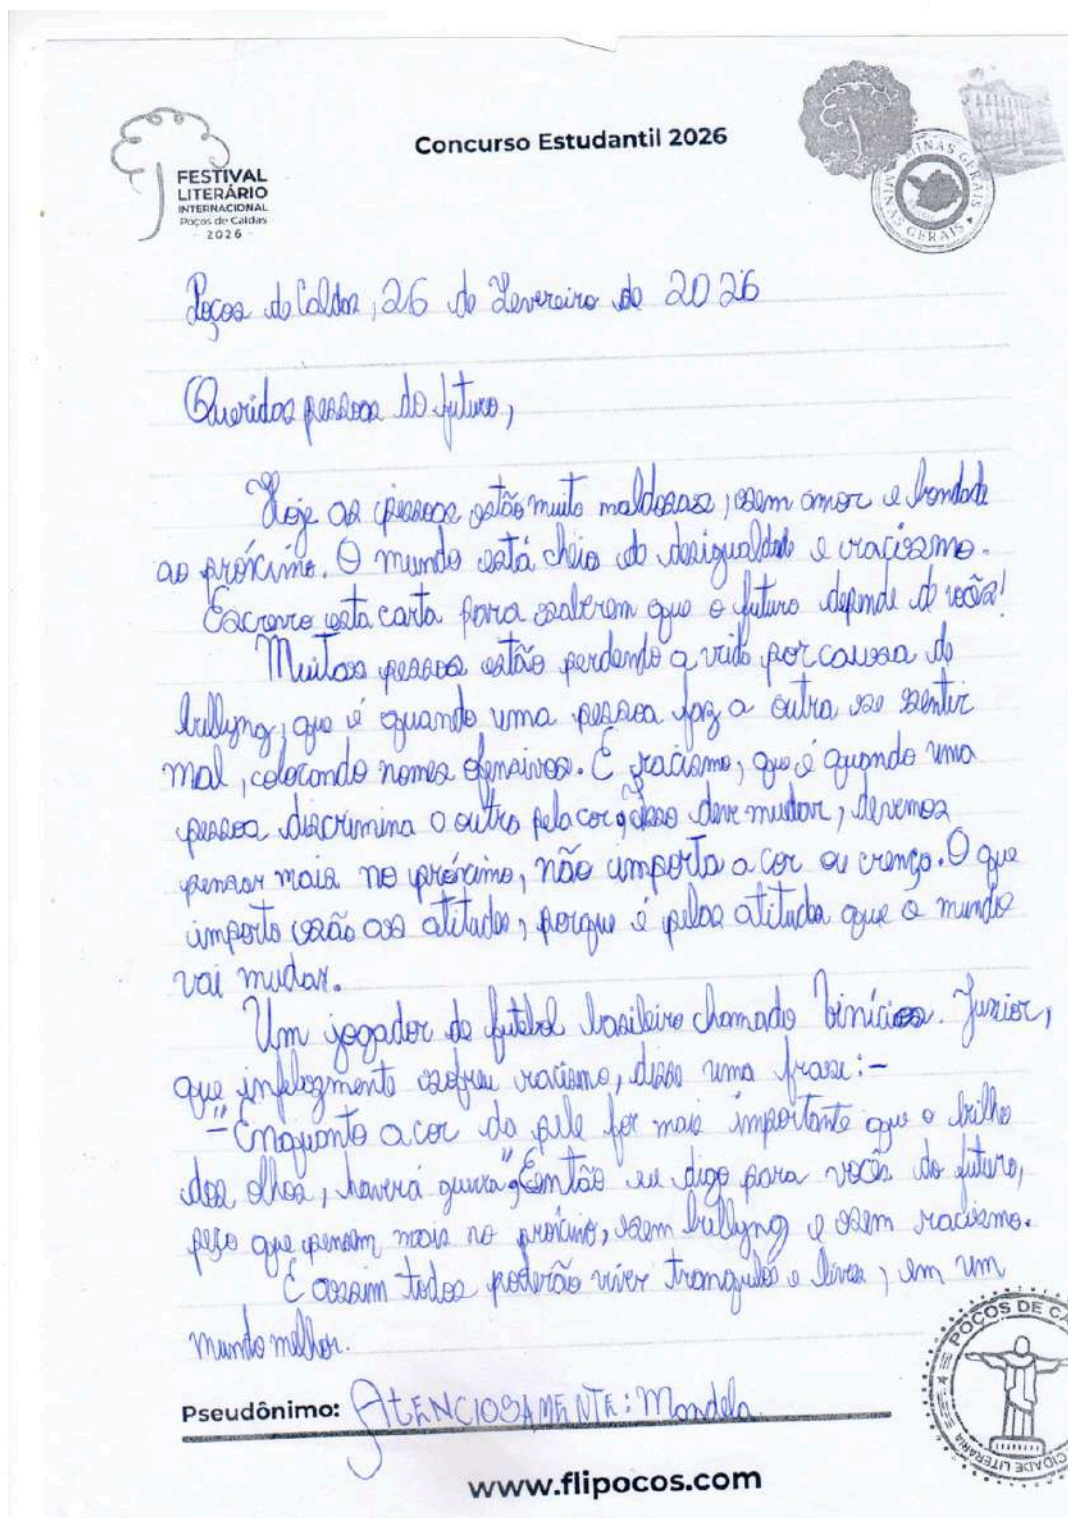 Concurso Estudantil 2026
FESTIVAL
LITERÁRIO
INTERNACIONAL
Poços de Caldas
- 2026 -
MINAS GERAIS
MINAS GERAIS
Poços de Caldas, 26 de Fevereiro de 2026
Queridas pessoas do futuro,
Hoje as pessoas estão muito maldosas, sem amor e bondade
ao próximo. O mundo está cheio de desigualdade e racismo.
Escrevo esta carta para saberem que o futuro depende de vocês!
Muitas pessoas estão perdendo a vida por causa do
bullyng, que é quando uma pessoa faz a outra se sentir
mal, colocando nomes ofensivos. E racismo, que é quando uma
pessoa discrimina o outro pela cor, isso deve mudar, devemos
pensar mais no próximo, não importa a cor ou crença. O que
importa são as atitudes, porque é pelas atitudes que o mundo
vai mudar.
Um jogador de futebol basileiro chamado Vinícios. Junior,
que infelizmente sofreu racismo, disse uma frase:-
"-Enquanto a cor da pele for mais importante que o brilho
dos olhos, haverá guerra", Então eu digo para vocês do futuro,
peço que pensem mais no próximo, sem bullyng e sem racismo.
E assim todos poderão viver tranquilos e livres, em um
mundo melhor.
Pseudônimo: ATENCIOSAMENTE: Mandela
POÇOS DE CA
CIDADE LITERÁRIA
www.flipocos.com